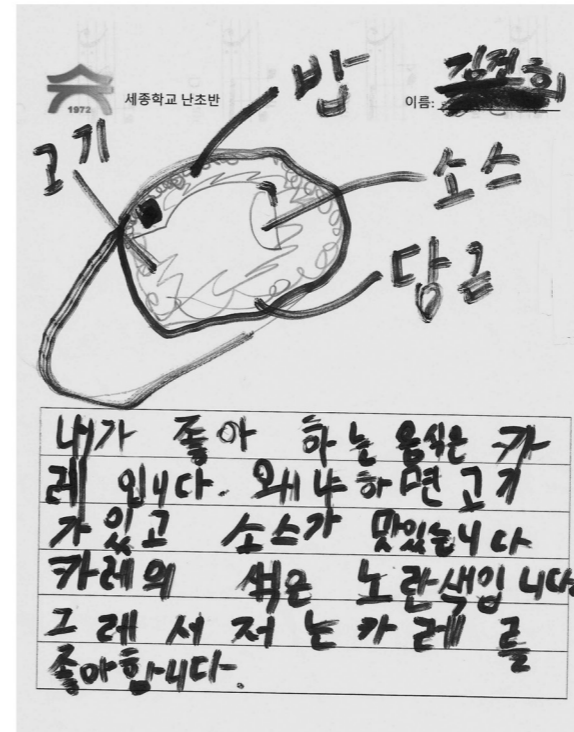 1972
세종학교 난초반
이름: 김건희
밥
고기
소스
당근
내가 좋아 하는 음식은 카
레 입니다. 왜냐하면 고기
가 있고 소스가 맛있늡니다
카레의 섹은 노란색입니다
그레서 저는 카레를
좋아합니다.